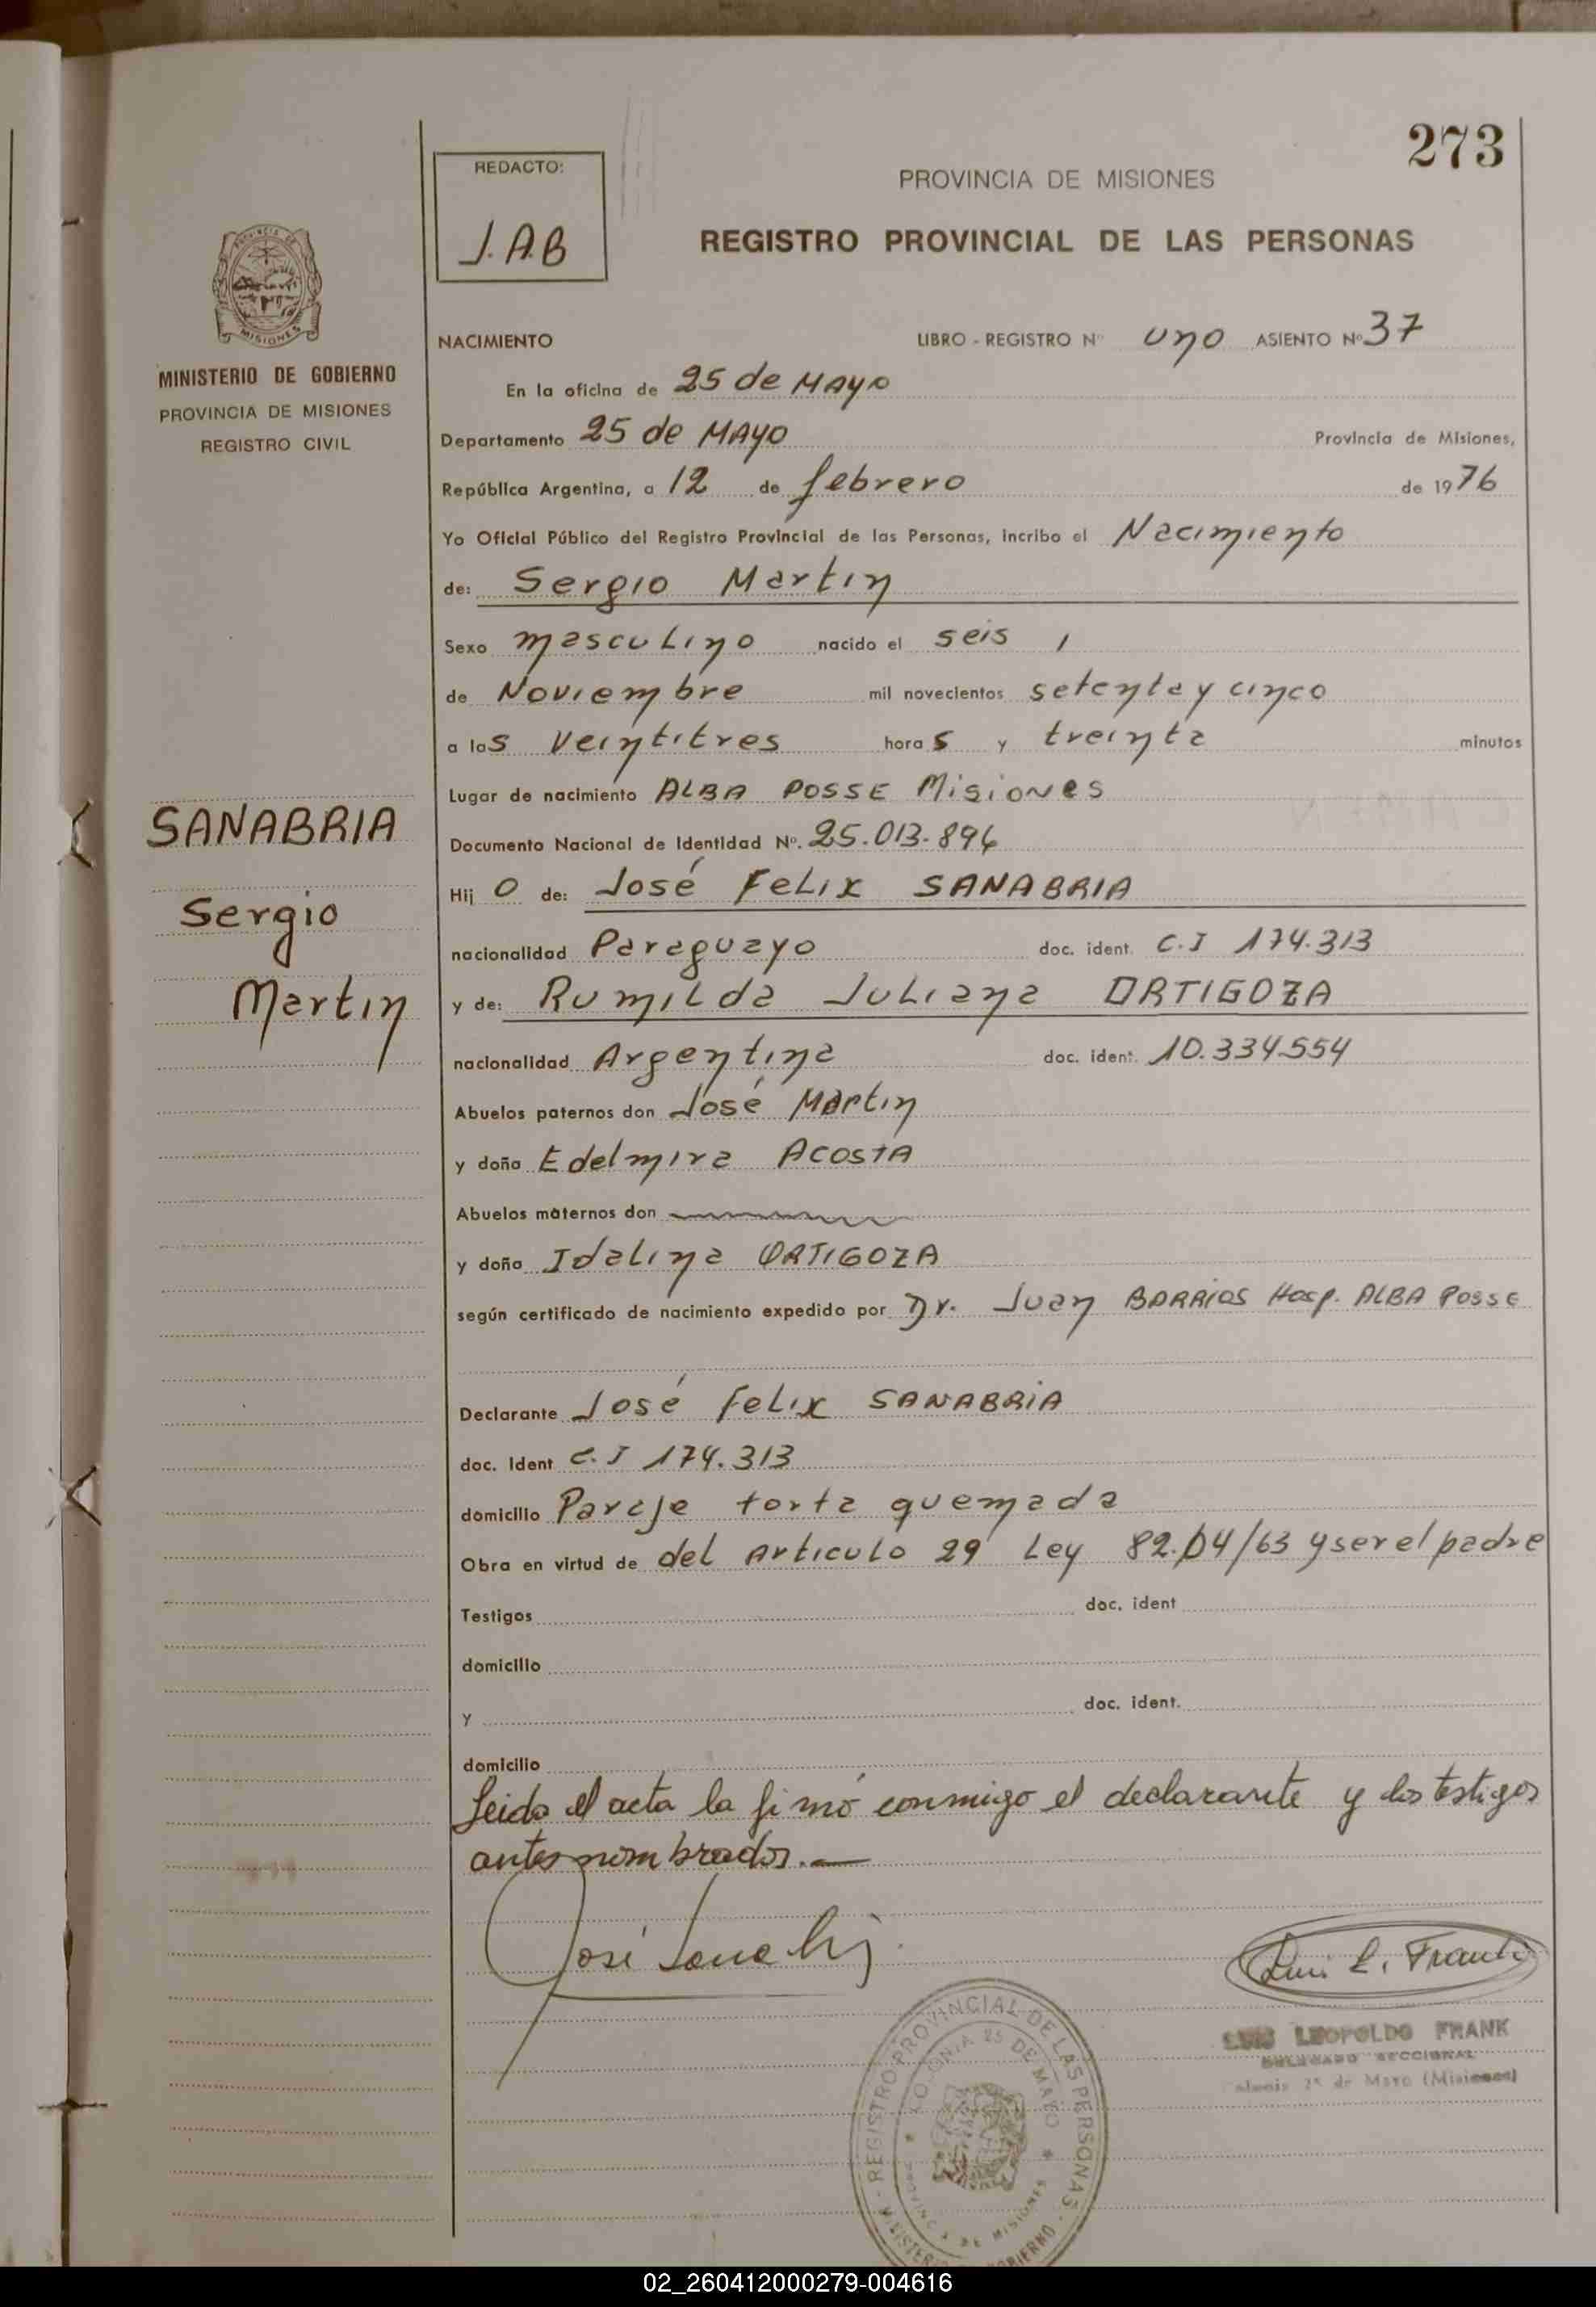 273
REDACTO:
J.A.B
PROVINCIA DE MISIONES
REGISTRO PROVINCIAL DE LAS PERSONAS
MISIONES
MINISTERIO DE GOBIERNO
PROVINCIA DE MISIONES
REGISTRO CIVIL
NACIMIENTO LIBRO - REGISTRO Nº uno ASIENTO Nº 37
En la oficina de 25 de MAYO
Departamento 25 de MAYO Provincia de Misiones,
República Argentina, a 12 de febrero de 1976
Yo Oficial Público del Registro Provincial de las Personas, incribo el Nacimiento
de: Sergio Martin
Sexo masculino nacido el seis
de Noviembre mil novecientos setenta y cinco
a las veintitres horas y treinta minutos
Lugar de nacimiento ALBA POSSE Misiones
SANABRIA
Sergio
Martin
Documento Nacional de Identidad Nº. 25.013.894
Hijo de: José FELIX SANABRIA
nacionalidad Paraguayo doc. ident. C.I 174.313
y de: Rumilda Juliana ORTIGOZA
nacionalidad Argentina doc. ident. 10.334554
Abuelos paternos don José Martin
y doña Edelmira ACOSTA
Abuelos maternos don
y doña Idalina ORTIGOZA
según certificado de nacimiento expedido por Dr. Juan BARRIOS Hosp. ALBA POSSE
Declarante José Felix SANABRIA
doc. Ident C.I 174.313
domicilio Paraje torta quemada
Obra en virtud de del Articulo 29 Ley 82.04/63 y ser el padre
Testigos doc. ident
domicilio
y doc. ident.
domicilio
Leida el acta la fi mó conmigo el declarante y los testigos
antes nombrados.—
José
Luis L. Frank
LUIS LEOPOLDO FRANK
DELEGADO SECCIONAL
Colonia 25 de Mayo (Misiones)
REGISTRO PROVINCIAL DE LAS PERSONAS
COLONIA 25 DE MAYO
PROVINCIA DE MISIONES
02_260412000279-004616